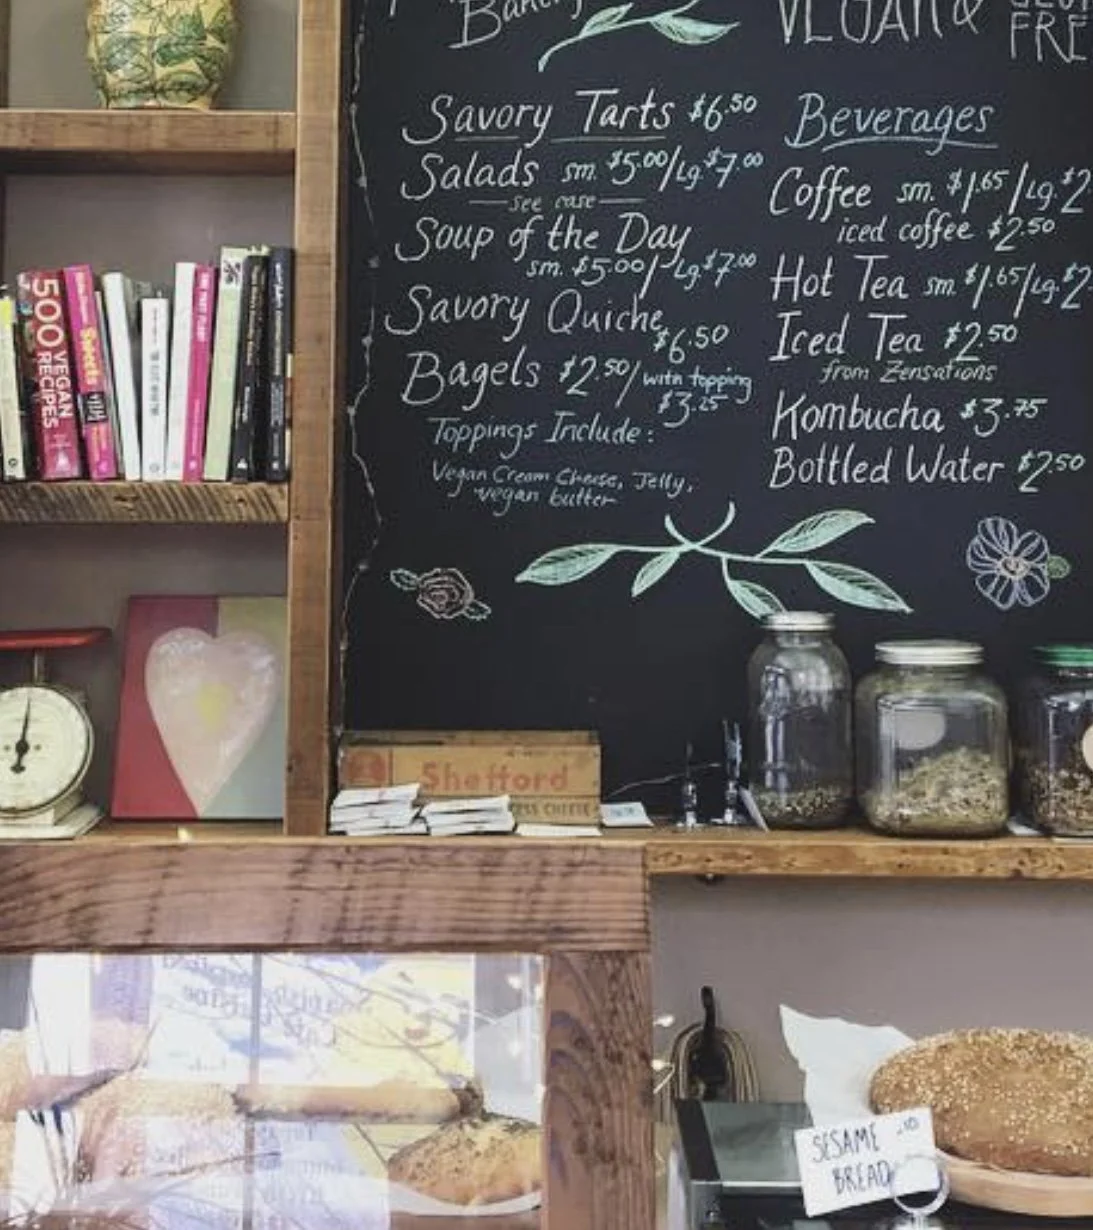 Bakery
VEGAN &
Savory Tarts $6.50
Salads sm. $5.00/Lg. $7.00
see case
Soup of the Day
sm. $5.00/Lg $7.00
Savory Quiche
$6.50
Bagels $2.50/with topping
$3.25
Toppings Include:
Vegan Cream Cheese, Jelly,
vegan butter
Beverages
Coffee sm. $1.65/Lg. $2
iced coffee $2.50
Hot Tea sm $1.65/Lg. $2
Iced Tea $2.50
from Zensations
Kombucha $3.75
Bottled Water $2.50
500
VEGAN
RECIPES
Sweets
Shefford
CHEESE
SESAME
BREAD